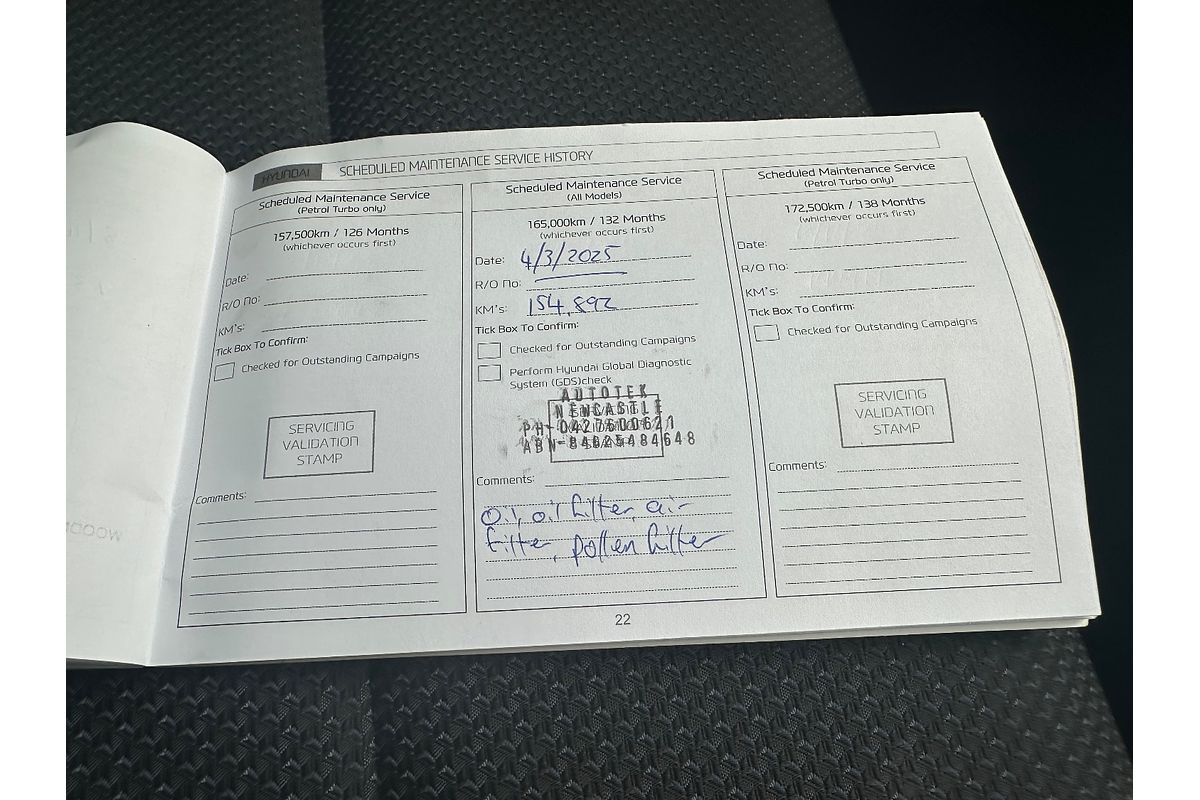 HYUNDAI SCHEDULED MAINTENANCE SERVICE HISTORY
Scheduled Maintenance Service
(Petrol Turbo only)
157,500km / 126 Months
(whichever occurs first)
Date:
R/O No:
KM's:
Tick Box To Confirm:
Checked for Outstanding Campaigns
SERVICING
VALIDATION
STAMP
Comments:
Scheduled Maintenance Service
(All Models)
165,000km / 132 Months
(whichever occurs first)
Date: 4/3/2025
R/O No:
KM's: 154,892
Tick Box To Confirm:
Checked for Outstanding Campaigns
Perform Hyundai Global Diagnostic
System (GDS)check
AUTOTEK
NEWCASTLE
PH-0427600621
ABN-84625484648
Comments:
Oil, oil filter, air
filter, pollen filter
Scheduled Maintenance Service
(Petrol Turbo only)
172,500km / 138 Months
(whichever occurs first)
Date:
R/O No:
KM's:
Tick Box To Confirm:
Checked for Outstanding Campaigns
SERVICING
VALIDATION
STAMP
Comments:
22